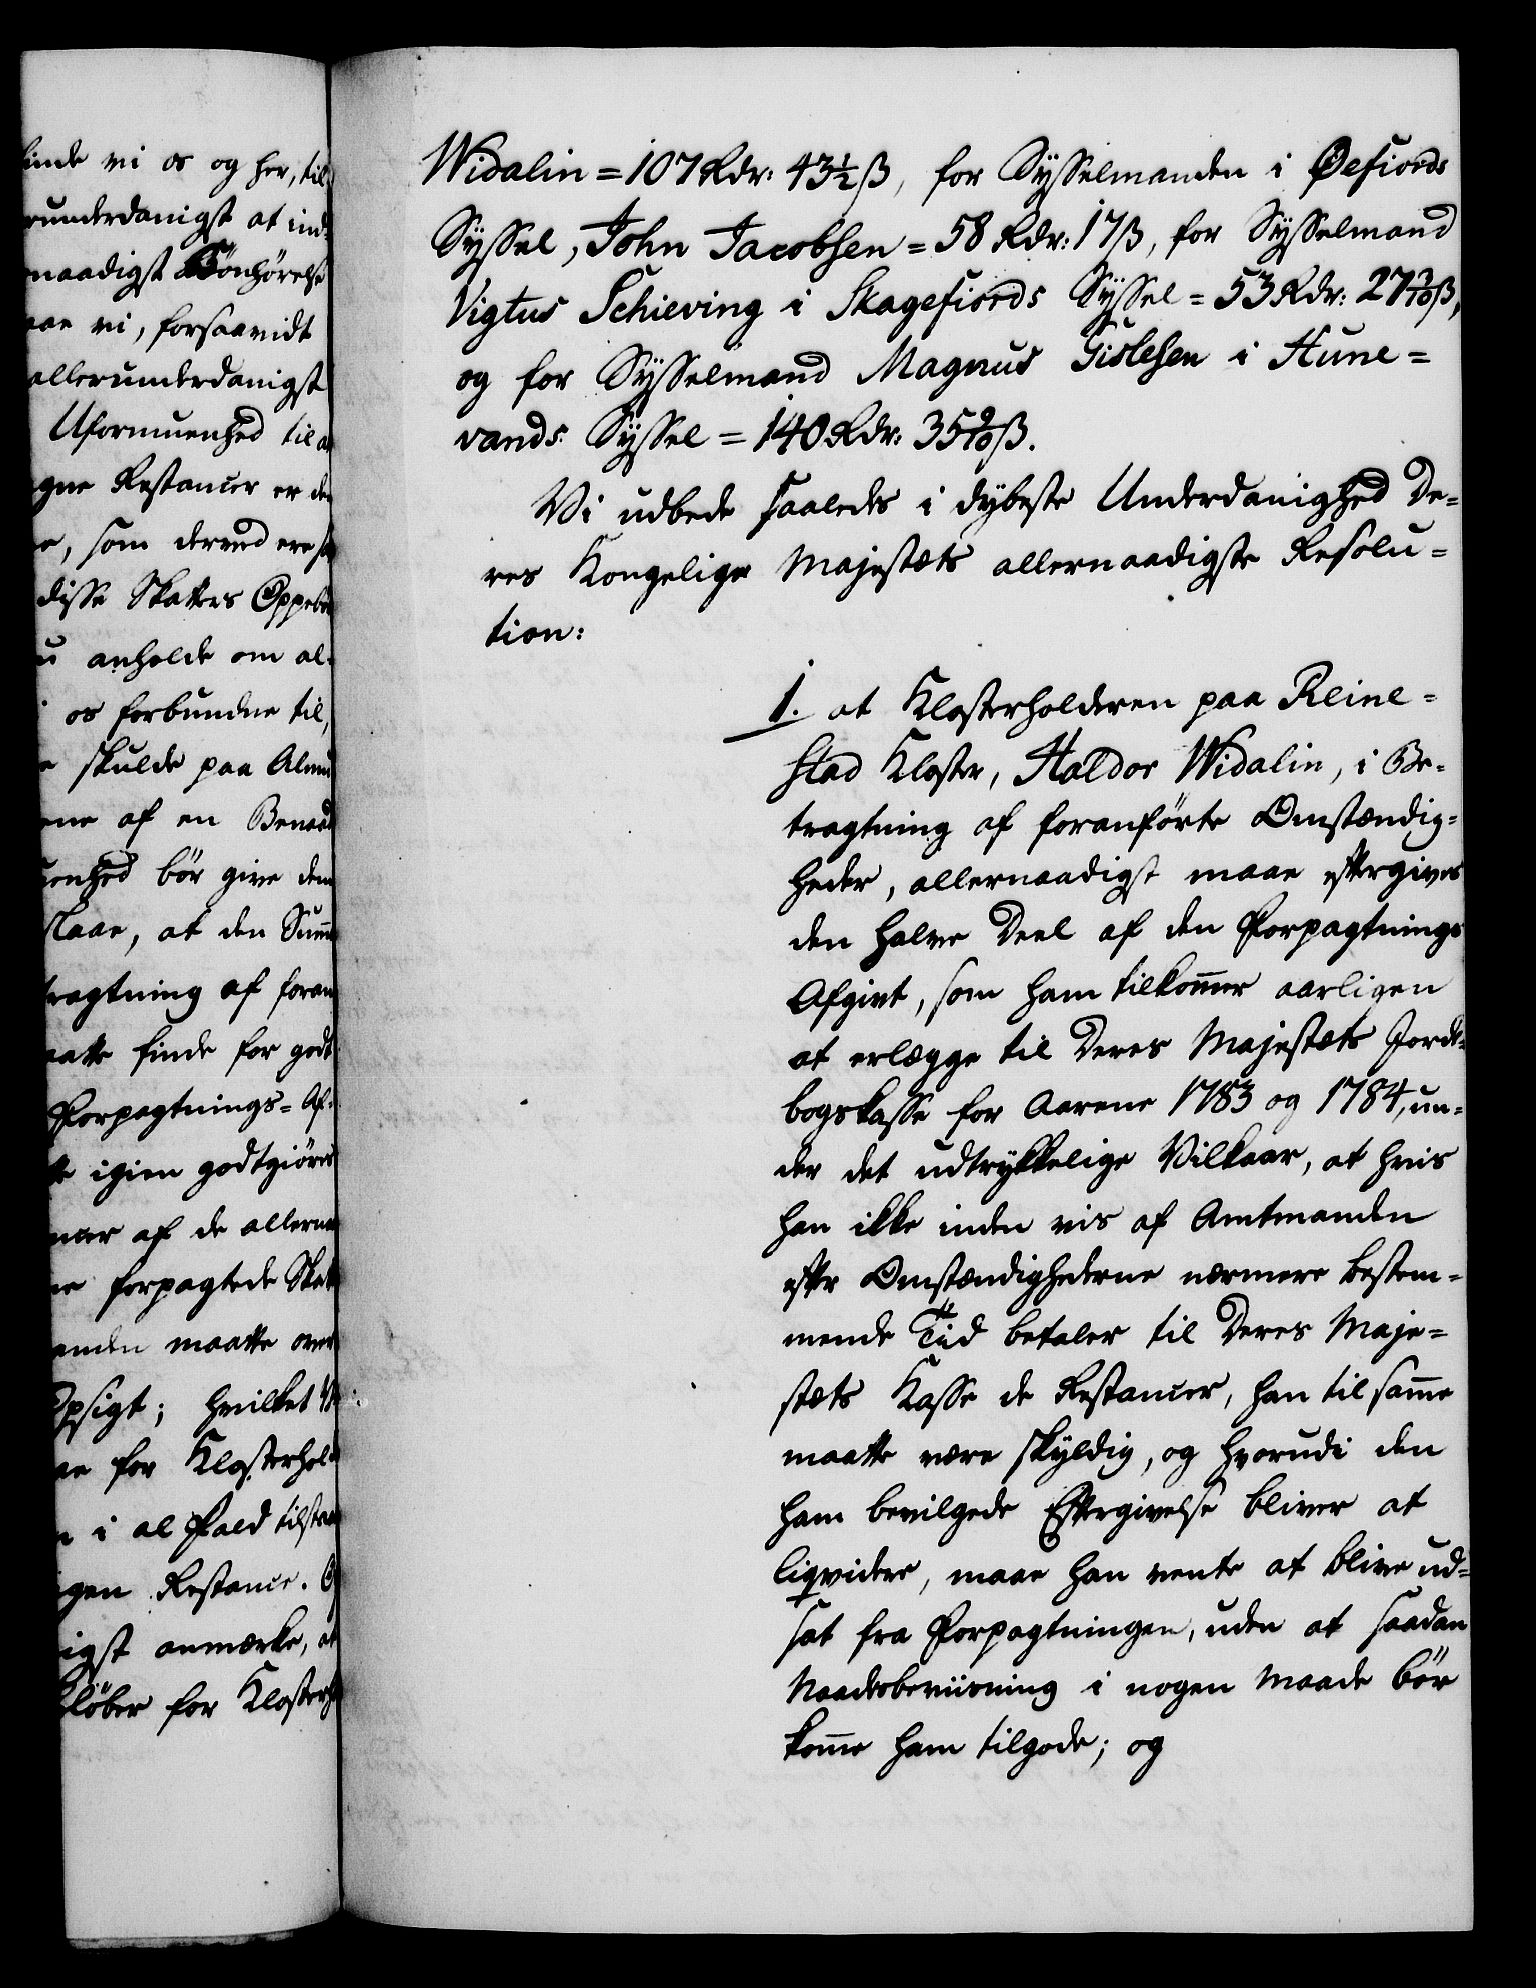 finde vi os og her, til
runderdanigst at ind-
naadigst Bönhörelse
aae vi, forsaavidt
allerunderdanigst
Uformuenhed til at
gne Restancer er de
e, som derved ere
disse Skatters Oppebö
anholde om al-
os forbundne til,
skulde paa Almu
ene af en Benaad
enhed bör give dem
slaae, at den Sum̅
tragtning af foran
atte finde for godt
Forpagtnings=Af-
igien godtgiöres
ncer af de allerna
ne forpagtede Skat
anden maatte over
Opsigt; hvilket V
ae for Klosterhol
i al Fald tilstræ
gen Restance. O
igst anmærke, at
löber for Klosterh
Widalin = 107 Rdr: 43½ ß, for Sysselmanden i Øefiords
Syssel, John Jacobsen = 58 Rdr: 17 ß, for Sysselmand
Vigfus Schieving i Skagefiords Syssel = 53 Rdr: 27 3/10 ß,
og for Sysselmand Magnus Gislesen i Hune=
vands Syssel = 140 Rdr: 35 9/10 ß.
Vi udbede saaledes i dybeste Underdanighed De=
res Kongelige Majestæts allernaadigste Resolu=
tion:
1. at Klosterholderen paa Reine=
stad Kloster, Haldor Widalin, i Be=
tragtning af foranförte Omstændig=
heder, allernaadigst maae eftergives
den halve Deel af den Forpagtnings
Afgivt, som ham tilkom̅er aarligen
at erlægge til Deres Majestæts Jorde=
bogskasse for Aarene 1783 og 1784, un=
der det udtrykkelige Vilkaar, at hvis
han ikke inden vis af Amtmanden
efter Omstændighederne nærmere bestem=
mende Tiid betaler til Deres Maje=
stæts Kasse de Restancer, han til sam̅e
maatte være skyldig, og hvorudi den
ham bevilgede Eftergivelse bliver at
liqvidere, maae han vente at blive ud=
sat fra Forpagtningen, uden at saadan
Naadesbeviisning i nogen Maade bör
kom̅e ham tilgode; og